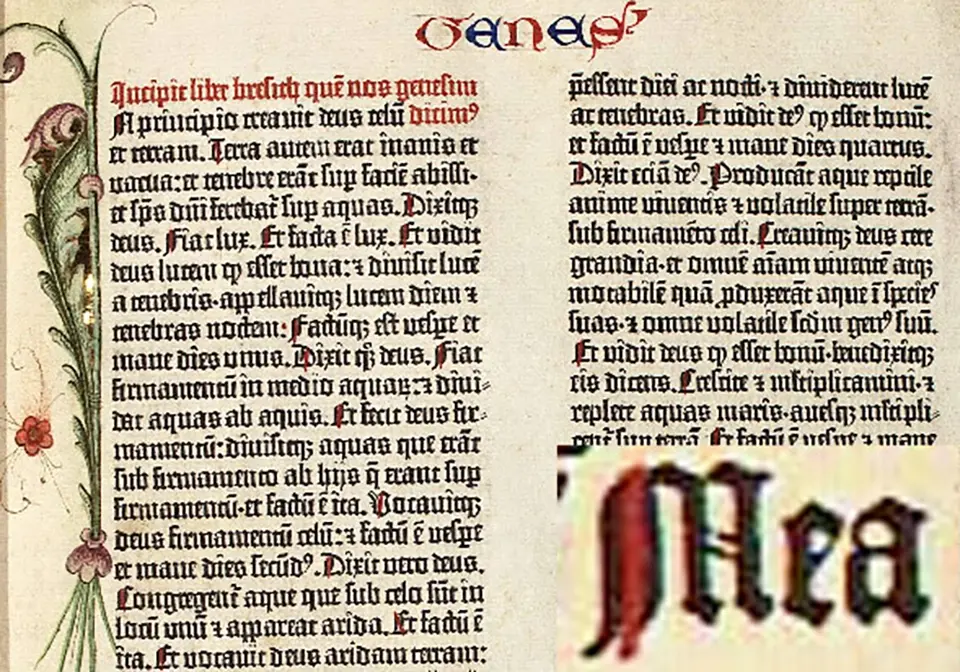 Genes
Incipit liber bresith quē nos genesim
N principio creauit deus celū dicimꝰ
et terram. Terra autem erat inanis et
uacua: et tenebre erāt sup faciē abissi.
et spūs dn̄i ferebat̄ sup aquas. Dixitqꝫ
deus. Fiat lux. Et facta ē lux. Et vidit
deus lucem ꝙ esset bona: ⁊ diuisit lucē
a tenebris. appellauitqꝫ lucem diem ⁊
tenebras noctem: Factūqꝫ est uesꝑe et
mane dies unus. Dixit qꝫ deus. Fiat
firmamentū in medio aquaꝝ: ⁊ diui-
dat aquas ab aquis. Et fecit deus fir-
mamentū: diuisitqꝫ aquas que erāt
sub firmamento ab hijs q̄ erant sup
firmamentū. et factū ē ita. Vocauitqꝫ
deus firmamentū celū: ⁊ factū ē uesꝑe
et mane dies secūdꝰ. Dixit vero deus.
Congregent̄ aque que sub celo sūt in
locū unū ⁊ appareat arida. Et factū ē
ita. Et uocauit deus aridam terram:
p̄essent diei ac nocti. ⁊ diuiderent lucē
ac tenebras. Et vidit deꝰ ꝙ esset bonū:
et factū ē uesꝑe ⁊ mane dies quartus.
Dixit eciā deꝰ. Producāt aque reptile
anime viuentis ⁊ volatile super terrā.
sub firmamēto celi. Creauitqꝫ deus cete
grandia. et omnē aīam viuentē atqꝫ
motabilē quā ꝓduxerāt aque ī species
suas. ⁊ omne volatile scdm genꝰ suū.
Et vidit deus ꝙ esset bonū. benedixitqꝫ
eis dicens. Crescite ⁊ mltiplicamini. ⁊
replete aquas maris. auesqꝫ mltipli-
cent̄ sup terrā. Et factū ē uesꝑe ⁊ mane
Mea